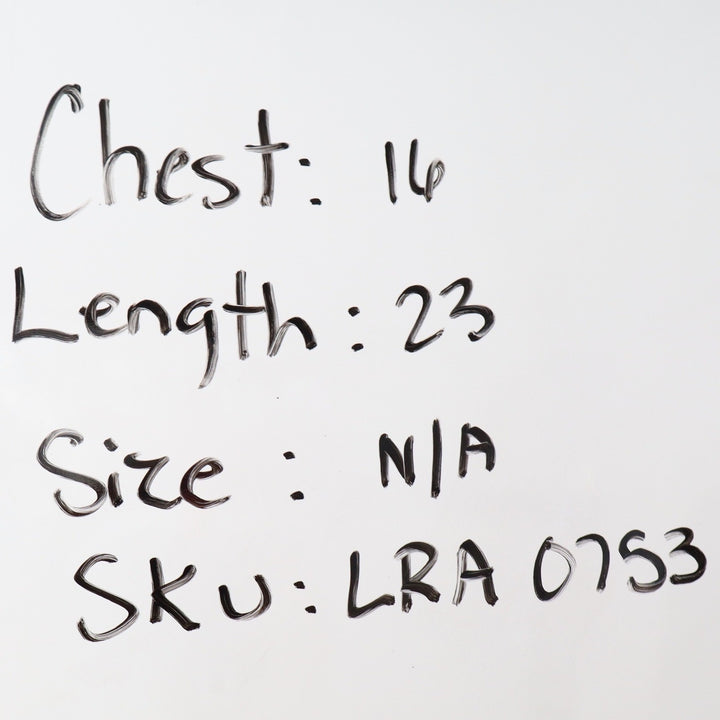 Chest: 16
Length: 23
Size: N/A
SKU: LRA 0753